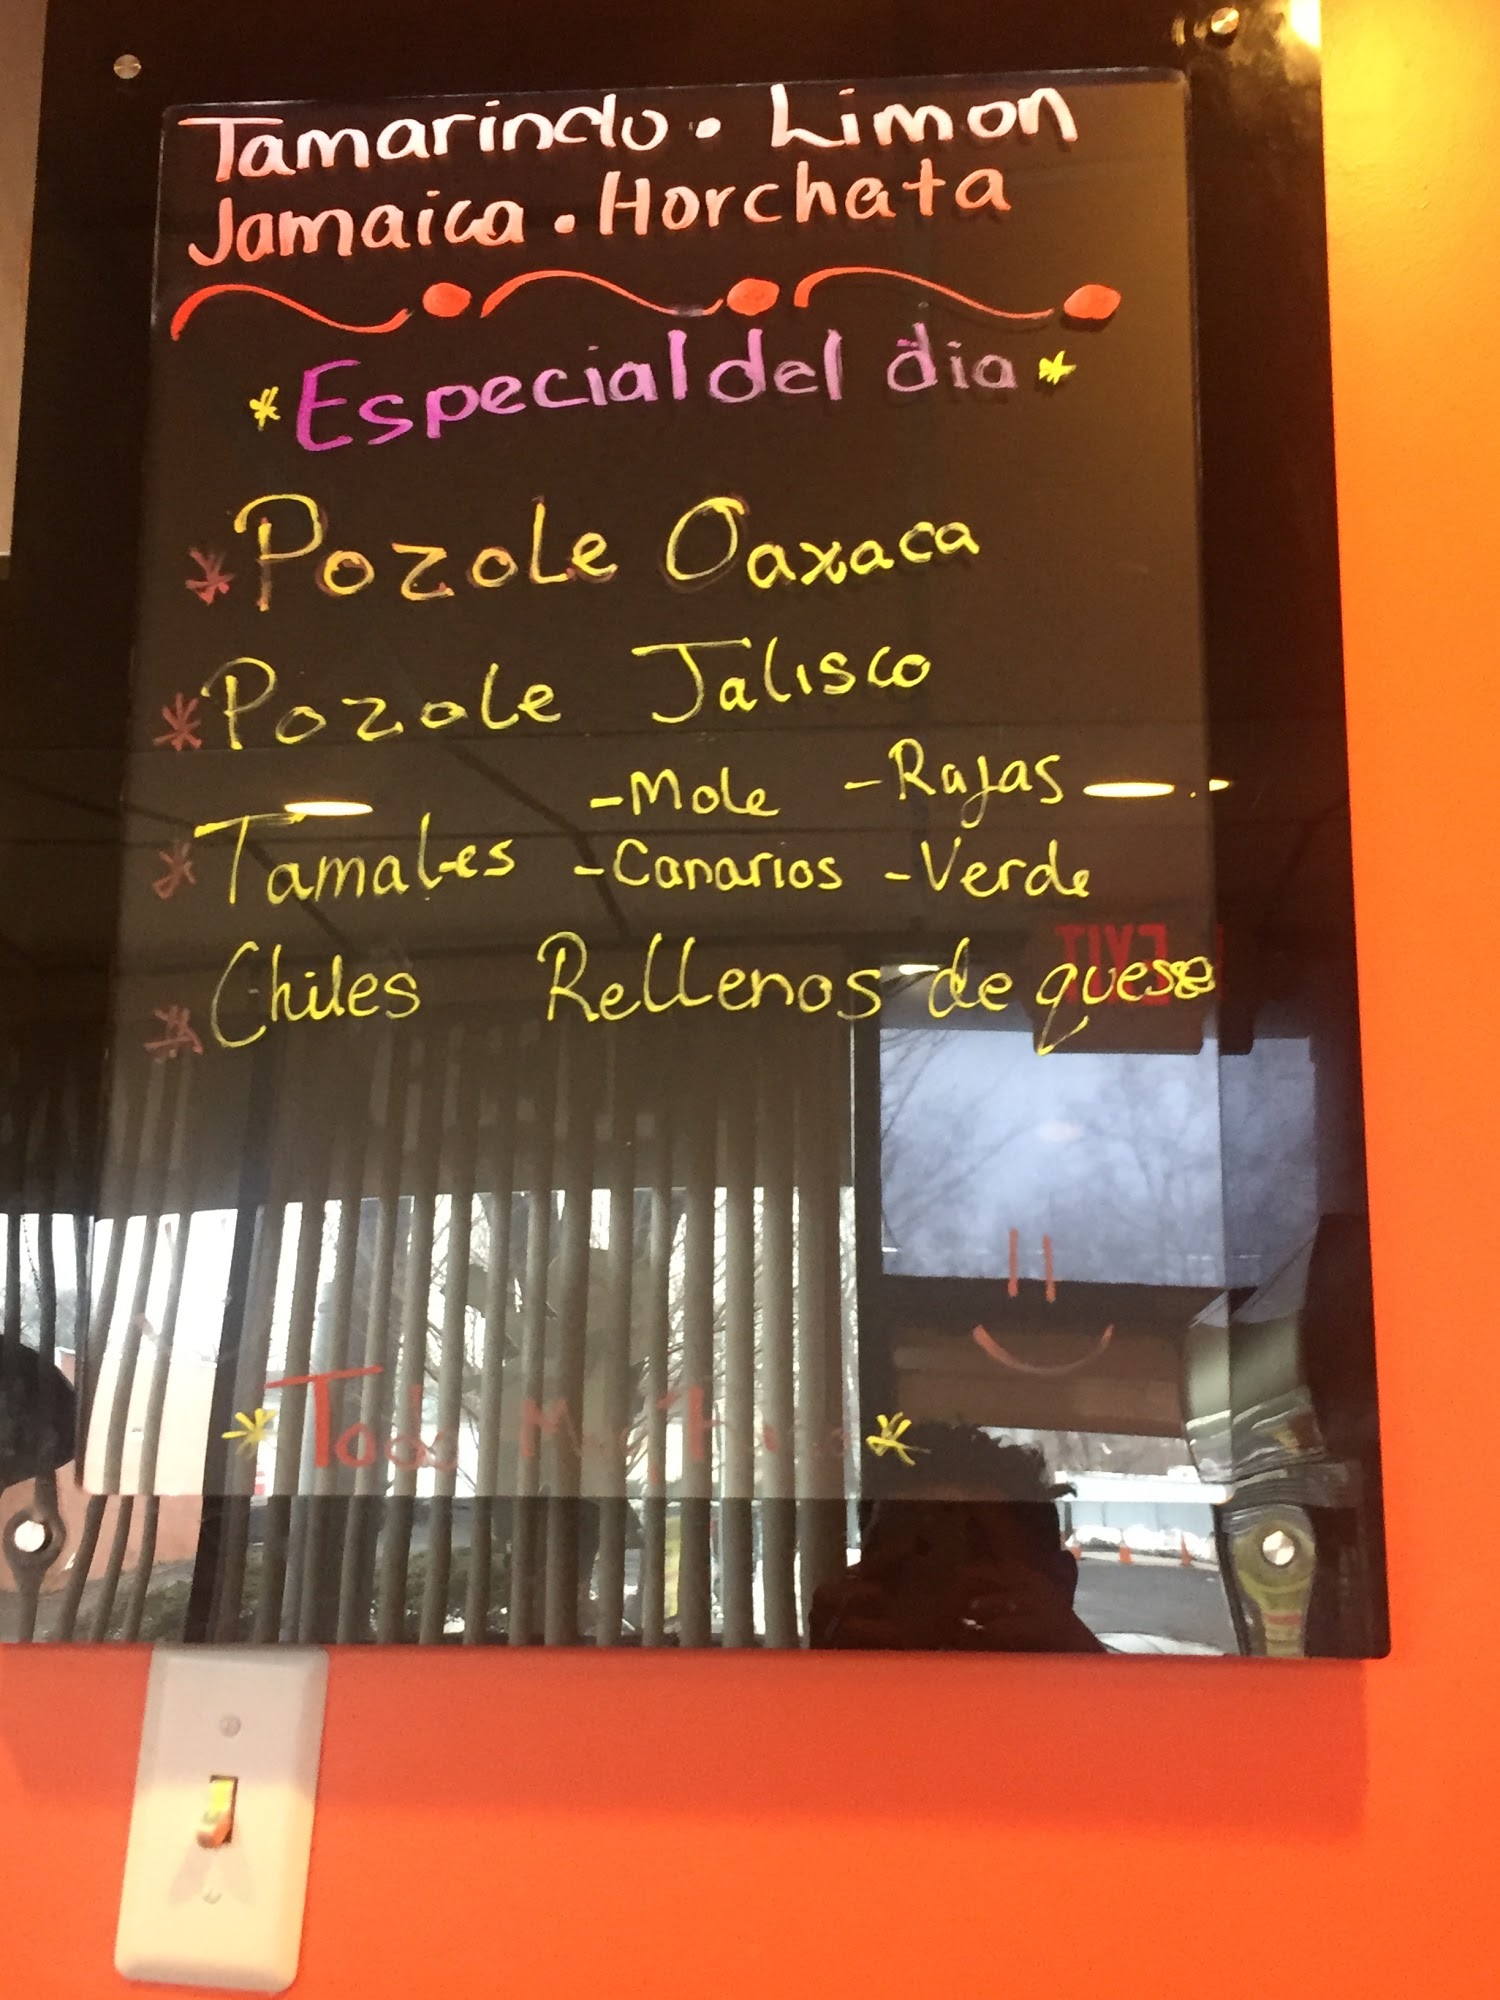 Tamarindo · Limon
Jamaica · Horchata
* Especial del dia *
* Pozole Oaxaca
* Pozole Jalisco
* Tamales -Mole -Rajas
-Canarios -Verde
* Chiles Rellenos de queso
EXIT
* Todo *